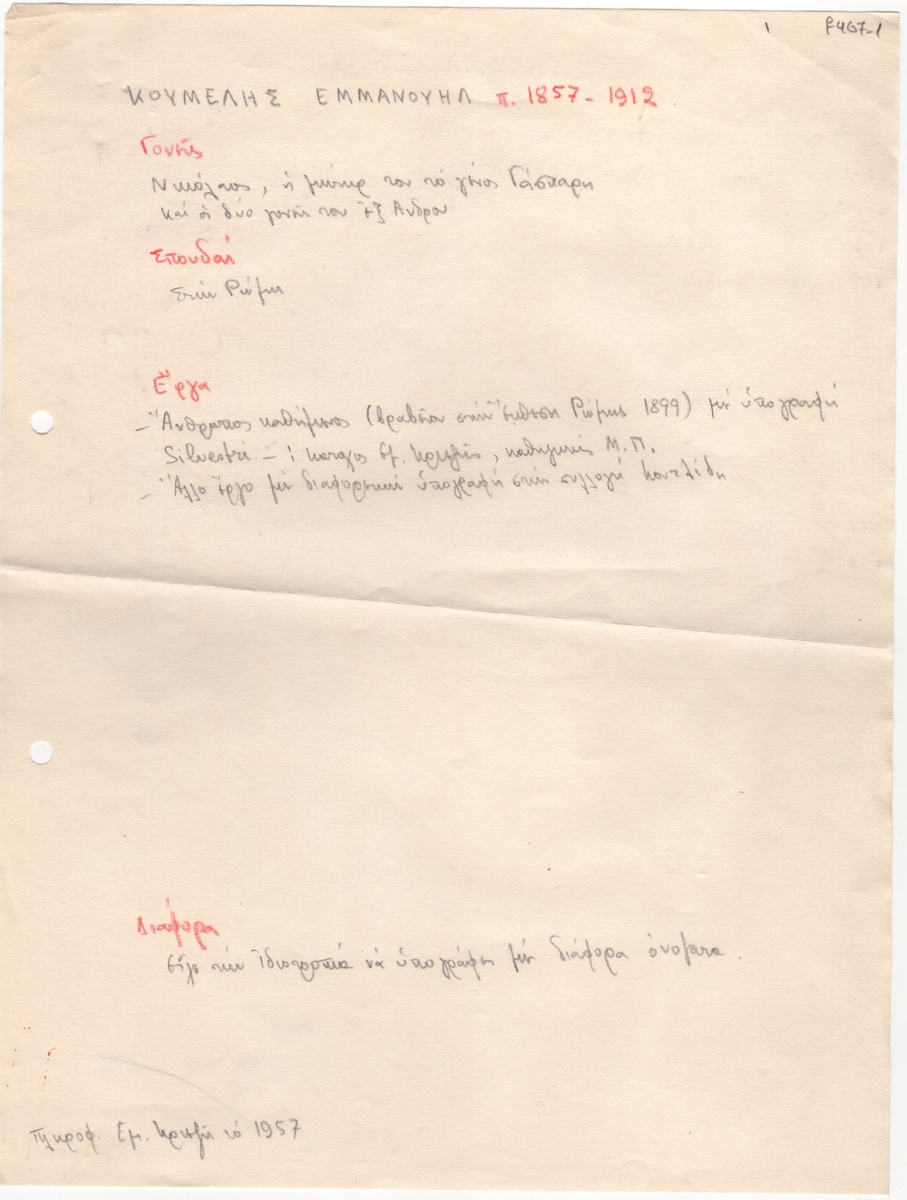 1 F467-1
ΚΟΥΜΕΛΗΣ ΕΜΜΑΝΟΥΗΛ π. 1857 - 1912
Γονεῖς
Νικόλαος, ἡ μητέρ του τό γένος Γάσπαρη
καί οἱ δύο γονεῖς του ἐξ Ἄνδρου
Σπουδαί
Στήν Ρώμη
Ἔργα
- Ἄνθρωπος καθήμενος (βραβεῖον στήν ἔκθεση Ρώμης 1899) μέ ὑπογραφή
Silvestri - Ἐμ. Κριεζῆς, καθηγητής Μ.Π.
- Ἄλλο ἔργο μέ διαφορετική ὑπογραφή στήν συλλογή Κουτλίδη
Διάφορα
εἶχε τήν ἰδιοτροπία νά ὑπογράφη μέ διάφορα ὀνόματα.
Πληροφ. Εμ. Κριεζῆ τό 1957